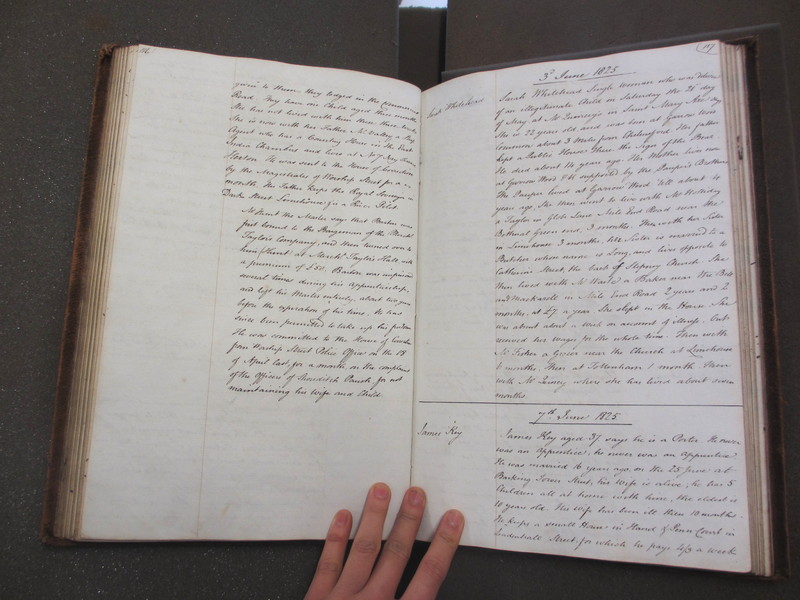 given to Horn. They lodged in the Commercial
Road. They have one Child aged three months.
She has not lived with him these three weeks.
She is now with her Father Mr
Agent who has a Counting House in the East
India Chambers and lives at No 7
Hoxton. He was sent to the House of Correction
by the Magistrates of Worship Street for a
month. The Father keeps the Royal Sovereign in
Dock Street Limehouse, is a River Pilot.
Mr Hunt the Master says that Barton was
first bound to the Bargeman of the Merchant
Taylors Company, and then turned over to
him (Hunt) at Mercht Taylors Hall with
a premium of £50. Barton was imprisoned
several times during his Apprenticeship,
and left his Master entirely about two years
before the expiration of his time. He has
since been permitted to take up his freedom
He was committed to the House of Correction
from Worship Street Police Office on the 18
of April last, for a month, on the complaint
of the Officers of Shoreditch Parish, for not
maintaining his Wife and Child.
117
3d June 1825
Sarah Whitehead
Sarah Whitehead Single Woman who was deliv'd
of an illegitimate Child on Saturday the 21 day
of May at Mr Quincey's in Saint Mary Axe
She is 22 years old and was born at Garrow Wood
Common about 3 Miles from Chelmsford. Her father
kept a Public House there the Sign of the
He died about 14 years ago. Her Mother lives now
at Garrow Wood & is supported by the Pauper's Brothers
The Pauper lived at Garrow Wood till about 4
years ago. She then went to live with Mr Holliday
a Taylor in Globe Lane Mile End Road near the
Bethnal Green end, 3 months. Then with her Sister
in Limehouse 3 months. Her Sister is married to a
Butcher whose name is Long, and lives opposite to
Catharine Street, the back of Stepney Church. She
then lived with Mr a Baker near the Bell
and Mackarell in Mile End Road 2 years and 2
months, at £7 a year. She slept in the House. She
was absent about a week on account of illness, but
received her wages for the whole time. Then with
Mr Fisher a Grocer near the Church at Limehouse
6 months. Then at Tottenham 1 month. Then
with Mr Quincy where she has lived about seven
months
7th June 1825
James Key
James Key aged 37 says he is a Porter. He never
was an Apprentice, he never was an apprentice
He was married 16 years ago, on the 25 June at
Barking Town Essex, his wife is alive, he has 5
Children all at home with him, the eldest is
10 years old. His Wife has been ill these 10 months.
He keeps a small House in Hand & Pen Court in
Leadenhall Street, for which he pays 4/3 a week